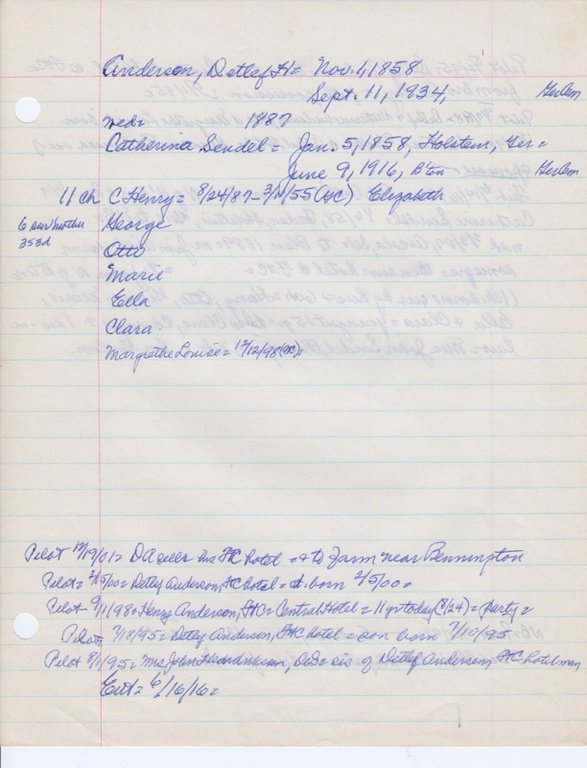 Anderson, Detlef H = Nov. 1, 1858
Sept. 11, 1934,
med = 1887
Catherina Sendel = Jan. 5, 1858, Holstein, Ger =
June 9, 1916, B'ton
11 ch C Henry = 8/24/87 - 55 Elizabeth
6 sur mother George
Otto
Marie
Ella
Clara
Margrethe Louise = 12/12/98
Pilot 12/19/01 = DA sells his FtC hotel = to farm near Bennington
Pilot = 2/15/00 = Detlef Anderson, FtC hotel = born 2/5/00 =
Pilot 9/1/98 = Henry Anderson, FtC = Central Hotel = 11 yrs today (8/24) = party =
Pilot = 7/18/95 = Detlef Anderson, FtC hotel = son born 7/10/95
Pilot 8/1/95 = Mrs John = sis of Detlef Anderson, FtC hotel man
Ent = 6/16/16 =